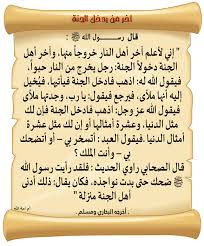 آخر من يدخل الجنة
قال رسول الله ﷺ :
" إني لأعلم آخر أهل النار خروجاً منها، وآخر أهل
الجنة دخولاً الجنة: رجل يخرج من النار حبواً،
فيقول الله له: اذهب فادخل الجنة فيأتيها، فيُخيل
إليه أنها ملأى، فيرجع فيقول: يا رب، وجدتها ملأى
فيقول الله عز وجل: اذهب فادخل الجنة فإن لك
مثل الدنيا، وعشرة أمثالها أو إن لك مثل عشرة
أمثال الدنيا .فيقول العبد: أتسخر بي – أو أتضحك
بي – وأنت الملك ؟
قال الصحابي راوي الحديث : فلقد رأيت رسول الله
ﷺ ضحك حتى بدت نواجذه، فكان يقال: ذلك أدنى
أهل الجنة منزلة "
. أخرجه البخاري ومسلم .